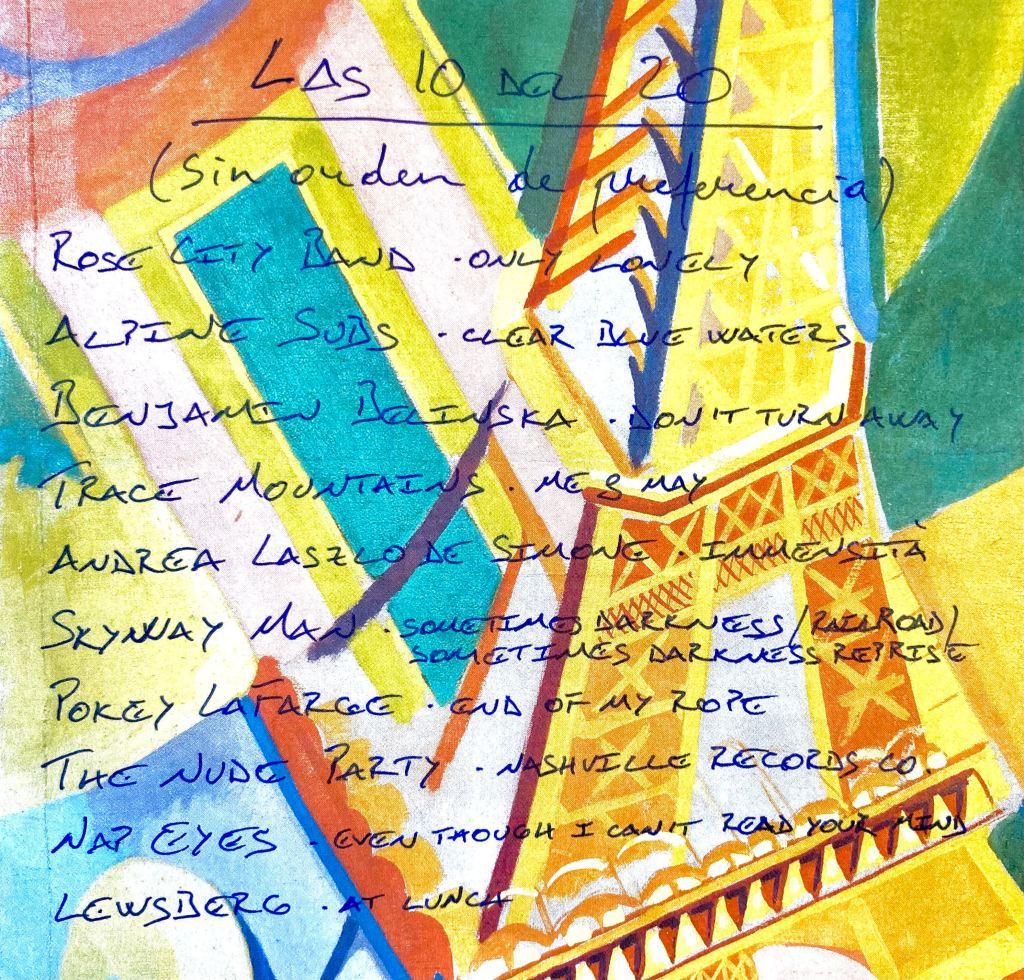 LAS 10 DEL 20
(Sin orden de preferencia)
ROSE CITY BAND · ONLY LONELY
ALPINE SUBS · CLEAR BLUE WATERS
BENJAMIN BELINSKA · DON'T TURN AWAY
TRACE MOUNTAINS · ME & MAY
ANDREA LASZLO DE SIMONE · IMMENSITÀ
SKYWAY MAN · SOMETIMES DARKNESS/RAILROAD/
SOMETIMES DARKNESS REPRISE
POKEY LAFARGE · END OF MY ROPE
THE NUDE PARTY · NASHVILLE RECORDS CO.
NAP EYES · EVEN THOUGH I CAN'T READ YOUR MIND
LEWSBERG · AT LUNCH